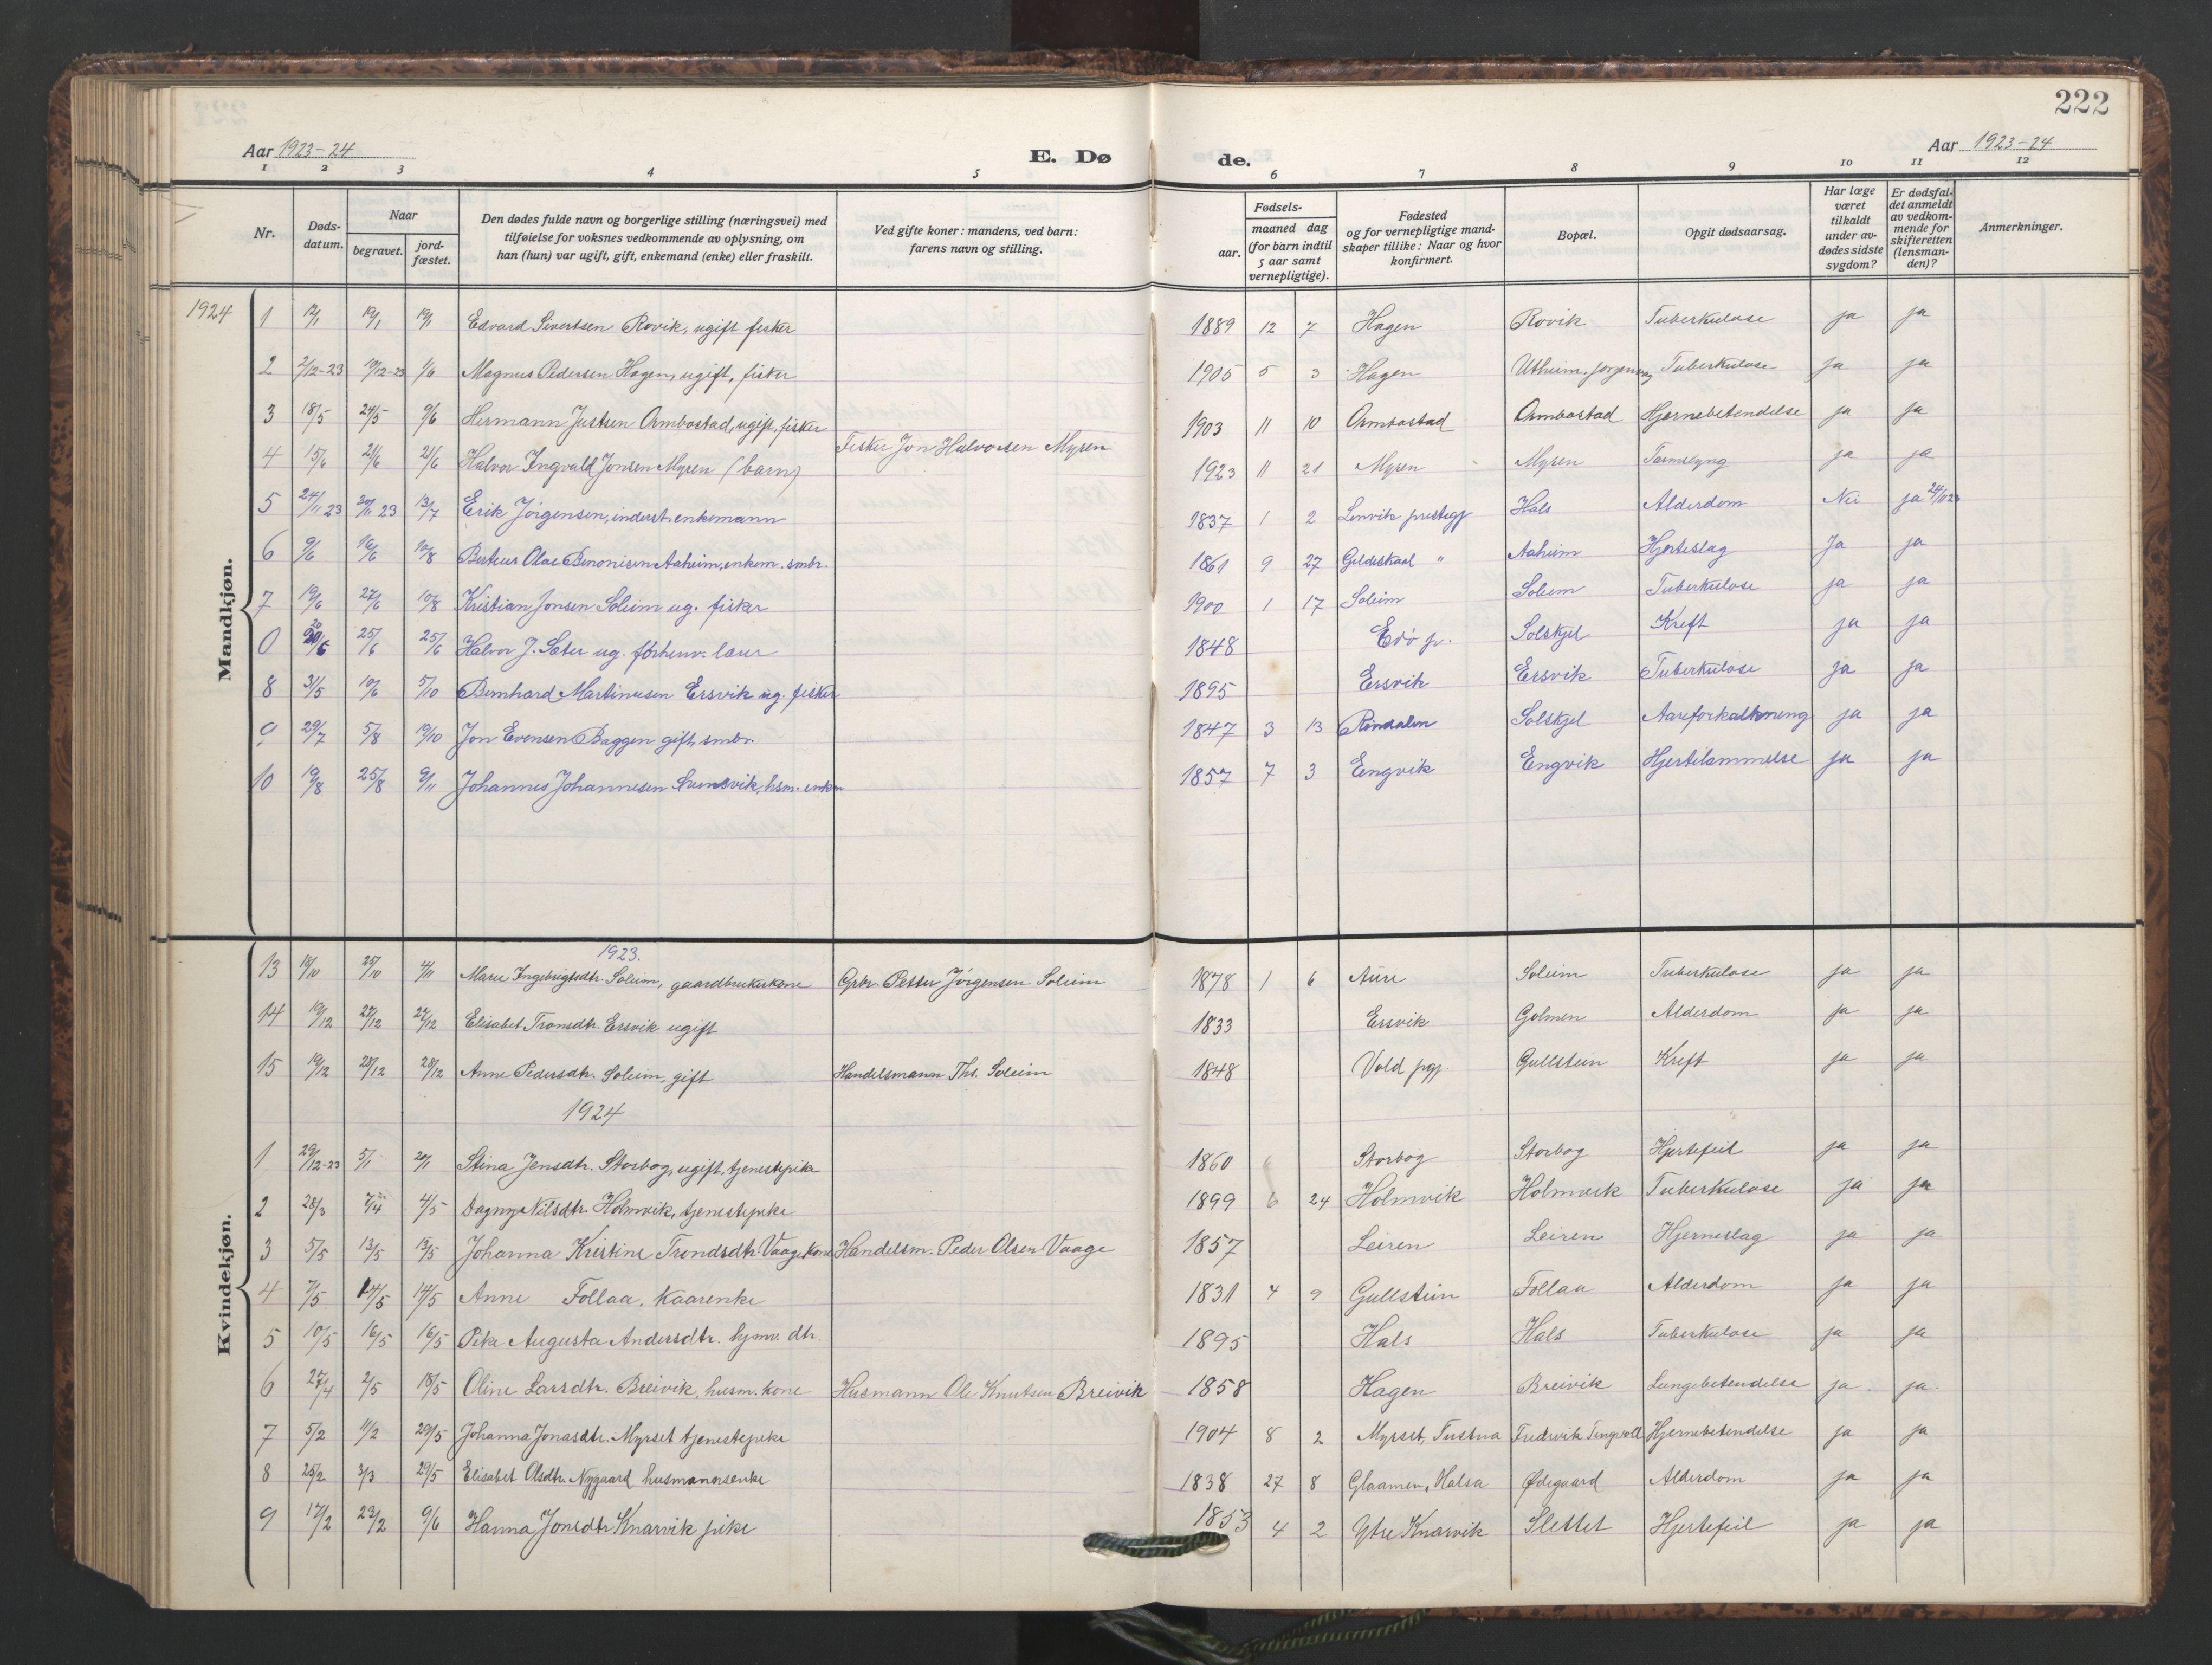 222
Aar 1923-24 E. Dø de. Aar 1923-24
1 2 3 4 5 6 7 8 9 10 11 12
Nr. Døds-datum. Naar begravet. jord-fæstet. Den dødes fulde navn og borgerlige stilling (næringsvei) med tilføielse for voksnes vedkommende av oplysning, om han (hun) var ugift, gift, enkemand (enke) eller fraskilt. Ved gifte koner: mandens, ved barn: farens navn og stilling. Fødsels- aar. maaned dag (for barn indtil 5 aar samt vernepligtige). Fødested og for vernepligtige mand-skaper tillike: Naar og hvor konfirmert. Bopæl. Opgit dødsaarsag. Har læge været tilkaldt under av-dødes sidste sygdom? Er dødsfal-det anmeldt av vedkom-mende for skifteretten (lensman-den)? Anmerkninger.
Mandkjøn.
1924 1 12/1 19/1 19/1 Edvard Sivertsen Rovik, ugift fisker 1889 12 7 Hagen Rovik Tuberkulose ja ja
2 2/12-23 19/12-23 1/6 Magnus Pedersen Hagen, ugift, fisker 1905 5 3 Hagen Utheim, Tuberkulose ja ja
3 18/5 24/5 9/6 Hermann Justsen Ormbostad, ugift, fisker 1903 11 10 Ormbostad Ormbostad Hjernebetendelse ja ja
4 15/6 21/6 21/6 Halvor Ingvald Jonsen Myren (barn) Fisker Jon Halvorsen Myren 1923 11 21 Myren Myren Tarmslyng ja ja
5 24/11 23 30/11 23 13/7 Erik Jörgensen, inderst, enkemann 1837 1 2 Lenvik prestegj Hals Alderdom Nei ja 24/11 23
6 9/6 16/6 10/8 Berteus Olae Benonisen Aaheim, enkem. smbr. 1861 9 27 Gildeskaal " Aaheim Hjerteslag Ja ja
7 19/6 27/6 10/8 Kristian Jonsen Soleim ug. fisker 1900 1 17 Soleim Soleim Tuberkulose ja ja
0 20/6 25/6 25/6 Halvor J. Sæter ug. forhenv. lærer 1848 Edø p. Solskjel Kreft ja ja
8 31/5 10/6 5/10 Bernhard Martinusen Ersvik ug. fisker 1895 Ersvik Ersvik Tuberkulose ja ja
9 29/7 5/8 19/10 Jon Evensen Baggen gift, smbr. 1847 3 13 Rindalen Solskjel Aareforkalkning ja ja
10 19/8 25/8 9/11 Johannes Johannesen Svensvik, hsm. enkm 1857 7 3 Engvik Engvik Hjertelammelse ja ja
Kvindekjøn.
1923.
13 18/10 25/10 4/11 Maree Ingebrigtsdtr. Soleim, gaardbrukerkone Grbr. Petter Jörgensen Soleim 1878 1 6 Aure Soleim Tuberkulose ja ja
14 19/12 27/12 27/12 Elisabet Tronsdtr. Ersvik ugift 1833 Ersvik Golmen Alderdom ja ja
15 19/12 28/12 28/12 Anne Pedersdtr. Soleim, gift Handelsmann Ths. Soleim 1848 Vold pgj. Gullstein Kreft ja ja
1924
1 29/12-23 5/1 20/1 Stina Jensdtr. Storbog, ugift, tjenestepike 1860 Storbog Storbog Hjertefeil ja ja
2 28/3 7/4 4/5 Dagny Nilsdtr. Holmvik, tjenestepike 1899 6 24 Holmvik Holmvik Tuberkulose ja ja
3 5/5 13/5 13/5 Johanna Kristine Trondsdtr. Vaage kone Handelsm. Peder Olsen Vaage 1857 Leiren Leiren Hjerneslag ja ja
4 7/5 14/5 14/5 Anne Follaa, kaarenke 1831 4 9 Gullstein Follaa Alderdom ja ja
5 10/5 16/5 16/5 Peka Augusta Andersdtr. hjmv. dtr. 1895 Hals Hals Tuberkulose ja ja
6 27/4 2/5 18/5 Oline Larsdtr. Breivik, husm. kone Husmann Ole Knutsen Breivik 1858 Hagen Breivik Lungebetendelse ja. ja.
7 5/2 11/2 29/5 Johanna Jonasdtr. Myrset tjenestepike 1904 8 2 Myrset, Tustna Fredrvik Tingvoll Hjernebetendelse ja ja
8 25/2 3/3 29/5 Elisabet Olsdtr. Nygaard husmannsenke 1838 27 8 Glaamen, Halsa Ødegaard Alderdom ja ja
9 17/2 23/2 9/6 Hanna Jonsdtr Knarvik pike 1853 4 2 Ytre Knarvik Slettet Hjertefeil ja ja